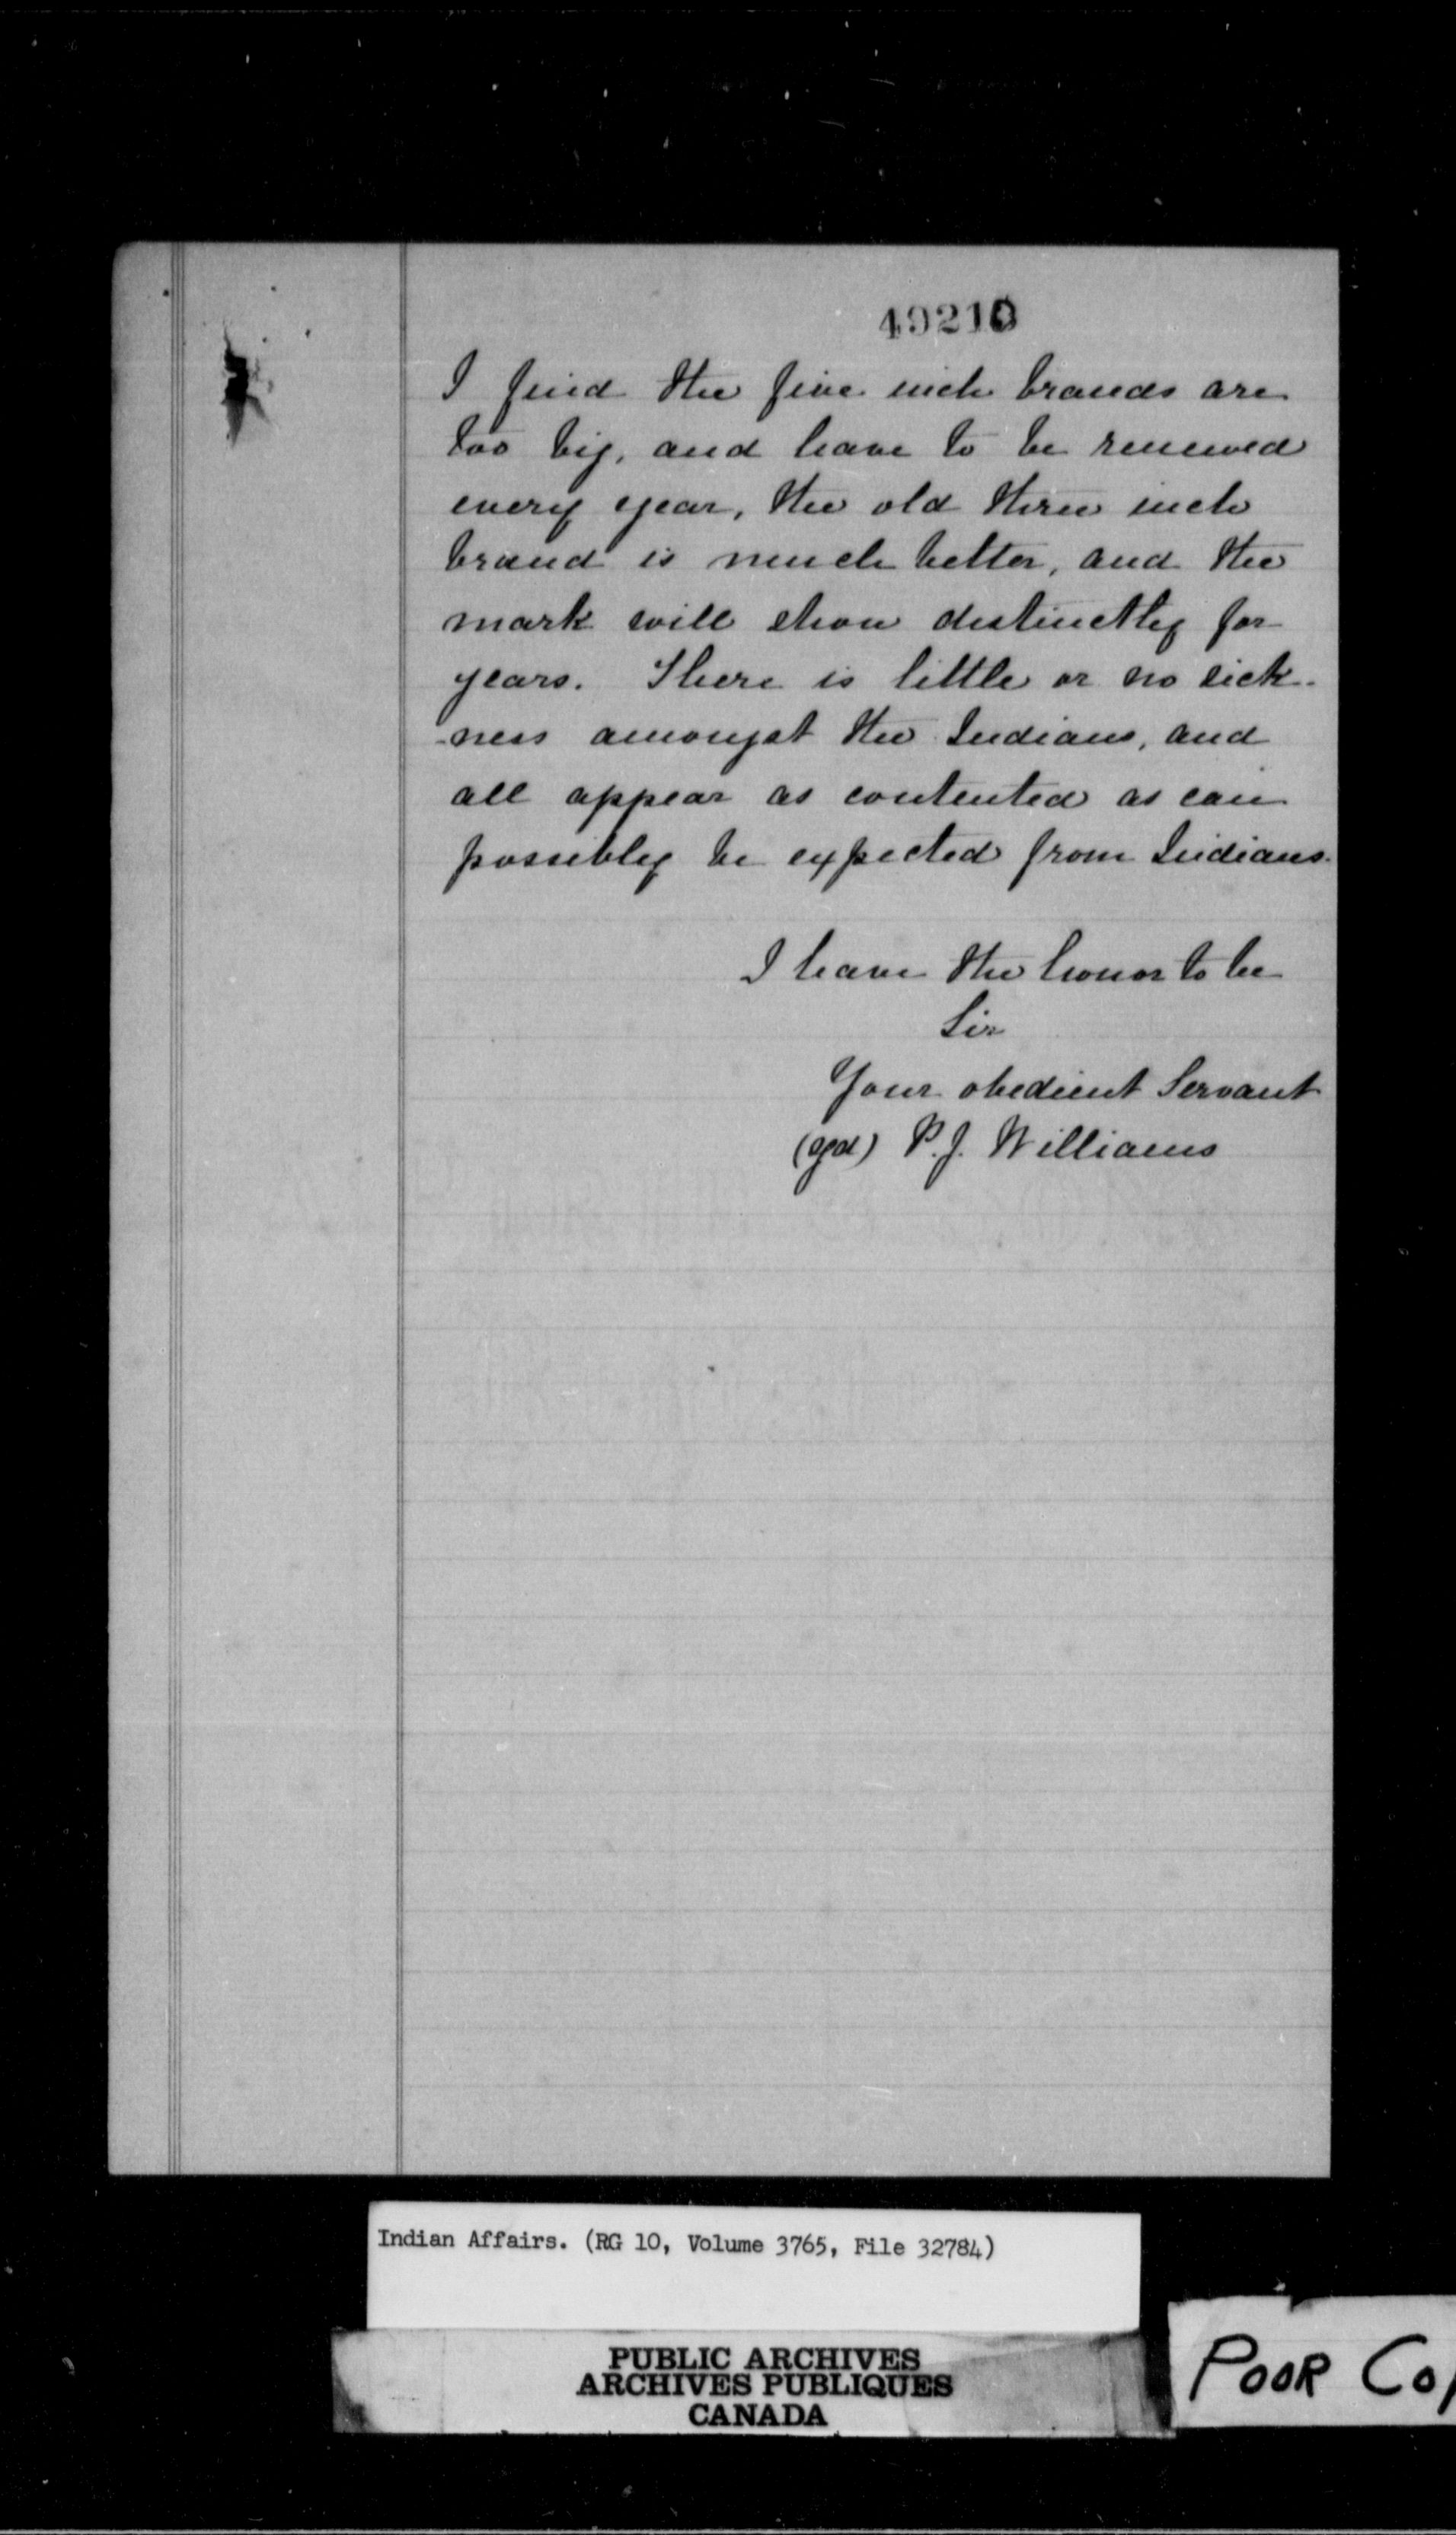 49210
I find the five inch brands are
too big, and have to be renewed
every year, the old three inch
brand is much better, and the
mark will show distinctly for
years. There is little or no sick-
-ness amongst the Indians, and
all appear as contented as can
possibly be expected from Indians.
I have the honor to be
Sir
Your obedient Servant
(sgd) P. J. Williams
Indian Affairs. (RG 10, Volume 3765, File 32784)
PUBLIC ARCHIVES
ARCHIVES PUBLIQUES
CANADA
POOR